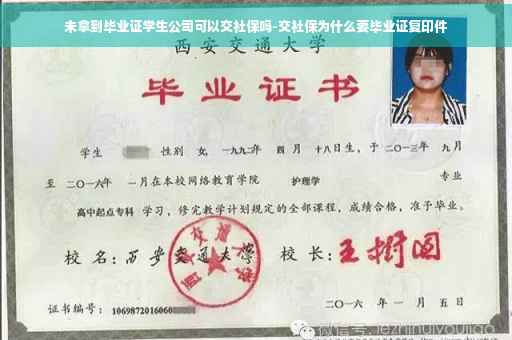 未拿到毕业证学生公司可以交社保吗-交社保为什么要毕业证复印件
西安交通大学
毕业证书
学生 性别 女, 一九九二年 四月 十八日生, 于 二〇一三年 九月
至 二〇一六年 一月在本校网络教育学院 护理学 专业
高中起点专科 学习, 修完教学计划规定的全部课程, 成绩合格, 准予毕业。
校名: 西安交通大学 校长: 王树国
证书编号: 1069872016060
二〇一六年 一月 五日
微信号: jezhihuiyoujiao